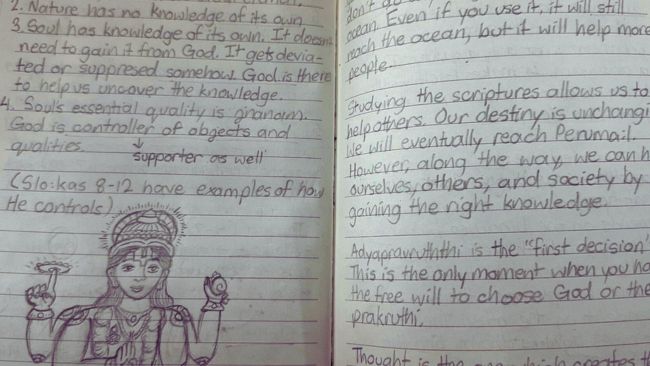 2. Nature has no knowledge of its own.
3. Soul has knowledge of its own. It doesn't
need to gain it from God. It gets devia-
ted or suppresed somehow. God is there
to help us uncover the knowledge.
4. Soul's essential quality is gnanam.
God is controller of obgects and
qualities.
↓
supporter as well
(Slo:kas 8-12 have examples of how
He controls)
don't do
ocean. Even if you use it, it will still
reach the ocean, but it will help more
people.
Studying the scriptures allows us to
help others. Our destiny is unchangi
We will eventually reach Perumail.
However, along the way, we can h
ourselves, others, and society by
gaining the right knowledge.
Adyapravruththi is the "first decision"
This is the only moment when you ha
the free will to choose God or the
prakruthi.
Thought is the which creates t